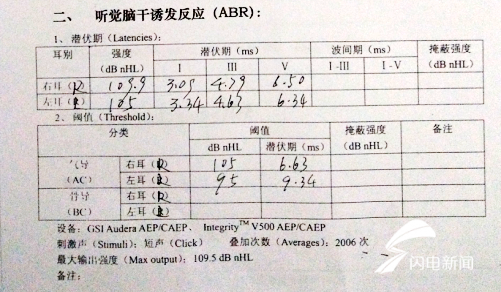 二、 听觉脑干诱发反应（ABR）：
1、潜伏期（Latencies）：
耳别 强度 (dB nHL) 潜伏期（ms） 波间期（ms） 掩蔽强度 (dB nHL)
I III V I-III I-V
右耳（R） 109.9 3.09 4.79 6.50
左耳（ ） 105 3.34 4.63 6.34
2、阈值（Threshold）：
分类 阈值 掩蔽强度 (dB nHL) 备注
dB nHL 潜伏期（ms）
气导 (AC) 右耳（R） 105 6.63
左耳（ ） 95 9.34
骨导 (BC) 右耳（R）
左耳（ ）
设备：GSI Audera AEP/CAEP、 Integrity™ V500 AEP/CAEP
刺激声（Stimuli）；短声（Click） 叠加次数（Averages）；2006 次
最大输出强度（Max output）：109.5 dB nHL
备注：
闪电新闻